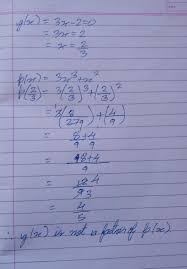 g(x) = 3x-2=0
= 3x = 2
= x = 2/3
p(x) = 3x³+x²
p(2/3) = 3(2/3)³+(2/3)²
= 3(8/279)+(4/9)
= 8/9+4/9
= 8+4/9
= 124/93
= 4/5
∴ g(x) is not a factor of p(x)